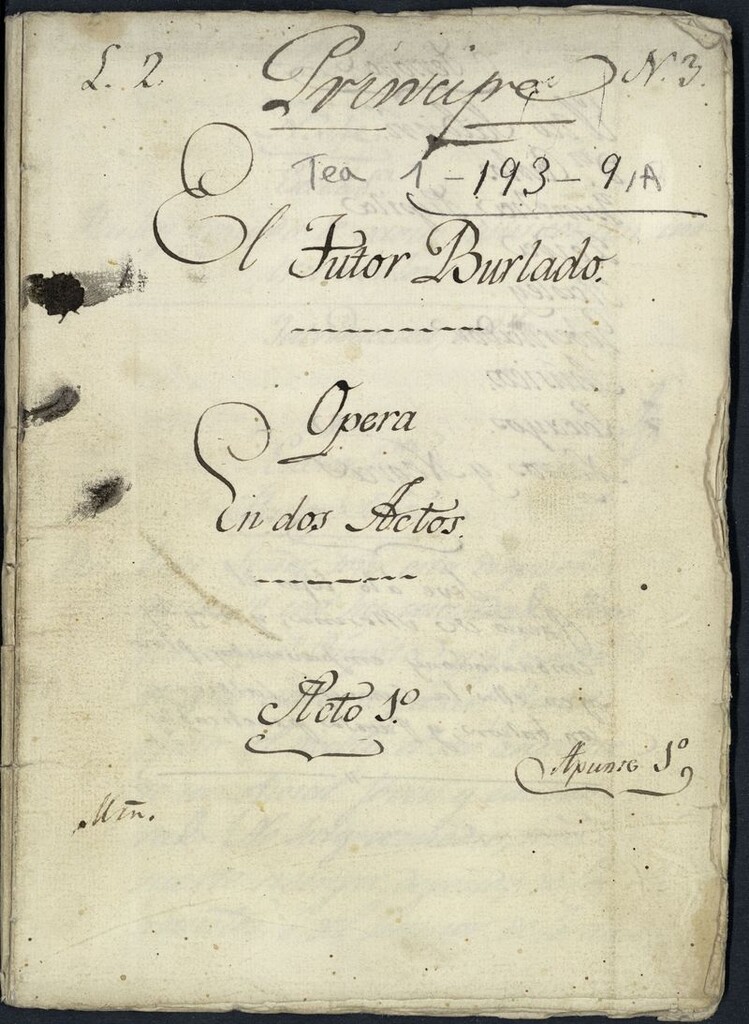 L. 2. Principe N. 3.
Tea 1-193-9, A
El Tutor Burlado.
Opera
En dos Actos.
Acto 1º
Apunte 1º
Mtn.